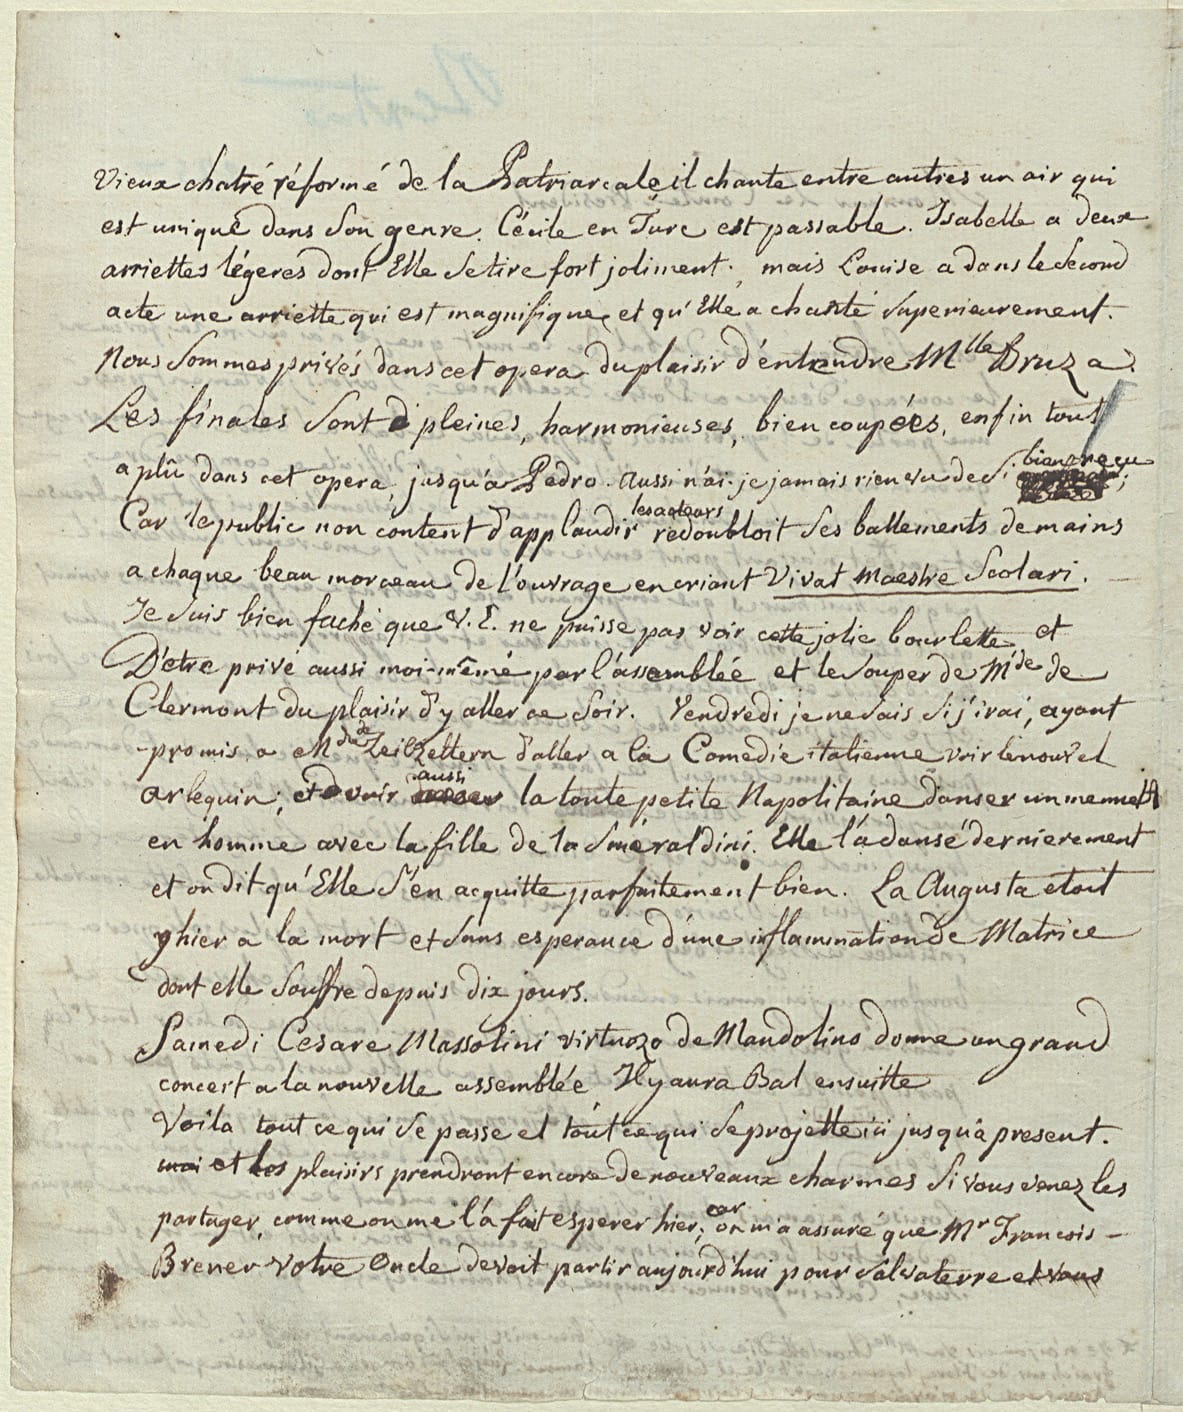 vieux chatré réformé de la Patriarcale il chante entre autres un air qui
est unique dans son genre. Cécile en Turc est passable. Isabelle a deux
arriettes légeres dont Elle se tire fort joliment; mais Louise a dans le Second
acte une arriette qui est magnifique, et qu'Elle a chanté Superieurement.
Nous Sommes privés dans cet opera du plaisir d'entendre Mlle Bruza.
Les finales sont pleines, harmonieuses, bien coupées, enfin tout
a plû dans cet opera, jusqu'à Pedro. aussi n'ai-je jamais rien vu de Si bien reçu;
Car le public non content d'applaudir les acteurs redoubloit Ses battements de mains
a chaque beau morceau de l'ouvrage en criant Vivat Maestre Scolari.
Je Suis bien faché que V. E. ne puisse pas voir cette jolie bourlette, et
D'etre privé aussi moi-même par l'assemblée et le Souper de Mde de
Clermont du plaisir d'y aller ce Soir. Vendredi je ne sais Si j'irai, ayant
promis a Mde de Zeilzeltern d'aller a la Comedie italienne voir le nouvel
arlequin; et voir aussi la toute petite Napolitaine danser un menuett
en homme avec la fille de la Smeraldini. Elle l'a dansé dernierement
et on dit qu'Elle S'en acquitte parfaitement bien. La Augusta etoit
hier a la mort et Sans esperance d'une inflammation de Matrice
dont elle Souffre depuis dix jours.
Samedi Cesare Massolini virtuozo de Mandolino donne un grand
concert a la nouvelle assemblée Il y aura Bal ensuitte
Voila tout ce qui Se passe et tout ce qui Se projette ici jusqu'a present.
et les plaisirs prendront encore de nouveaux charmes Si vous venez les
partager, comme on me l'a fait esperer hier; car on m'a assuré que Mr François
Brener votre Oncle devoit partir aujourd'hui pour Salvaterre et vous